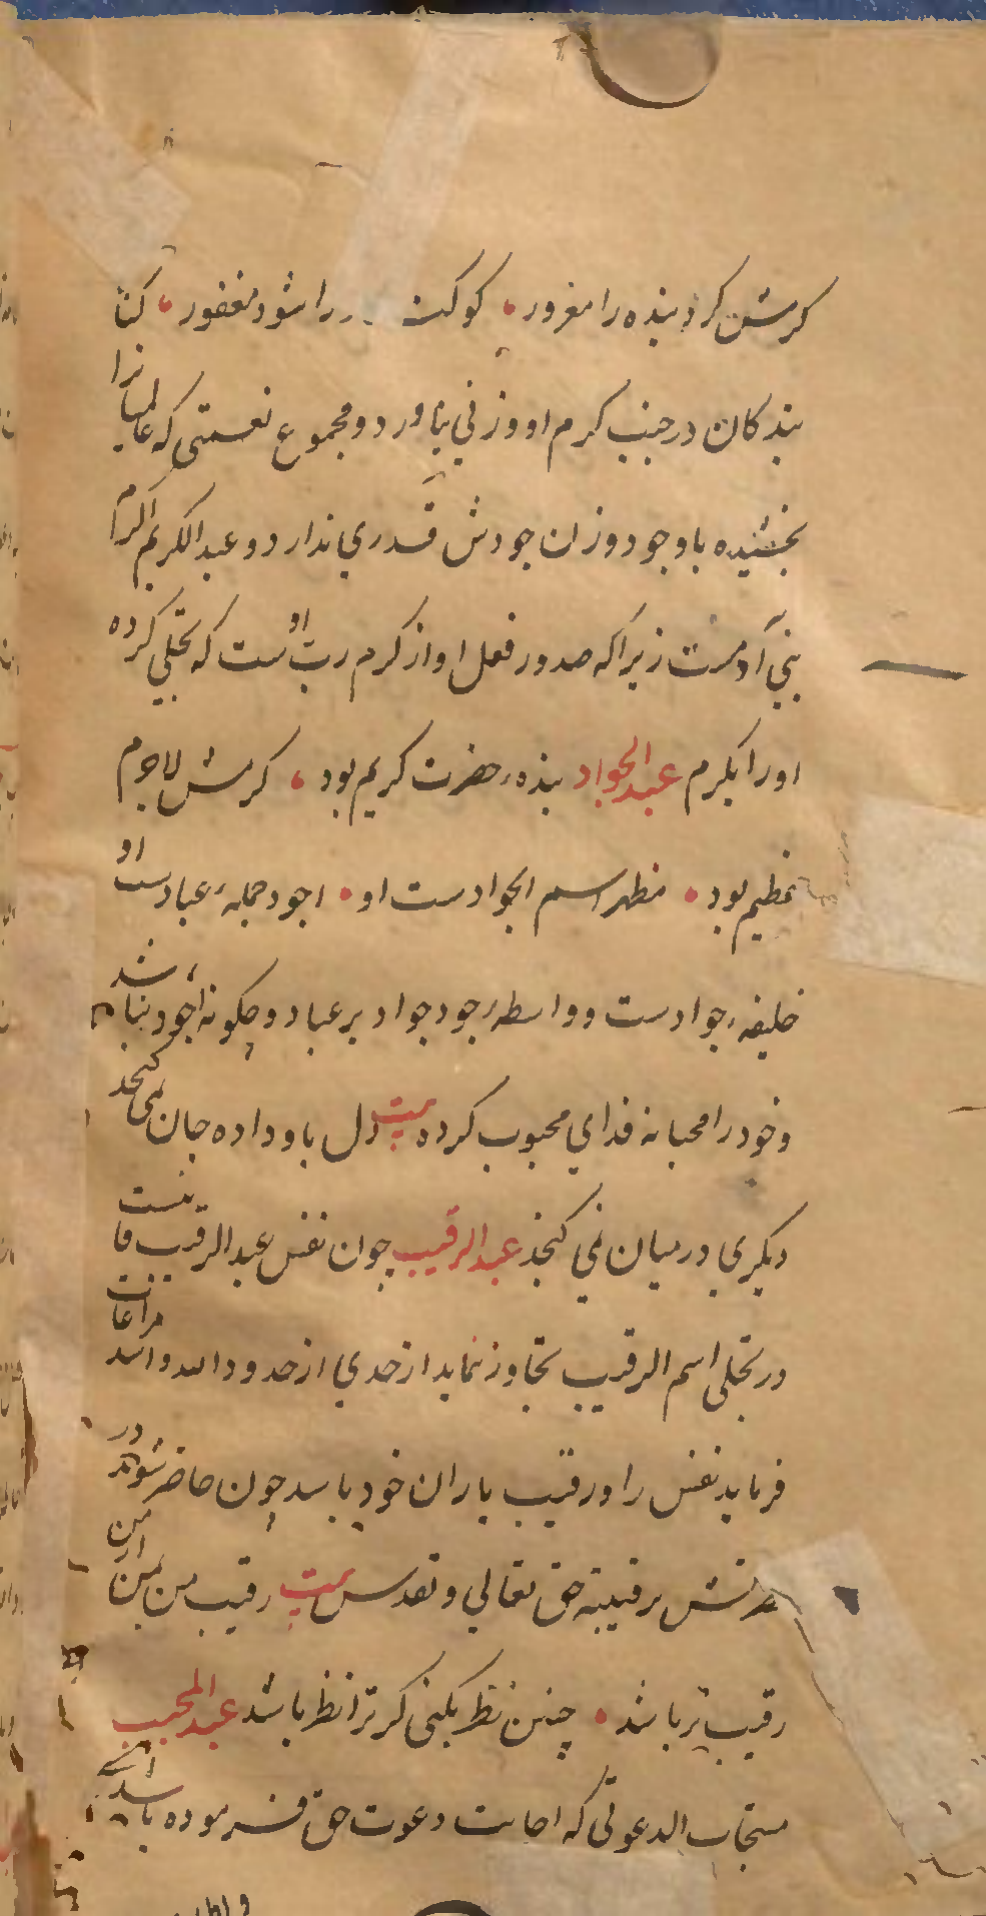 کرمش کرد بنده را مغرور ، کو کنه را شود مغفور ، کنا
بندکان در جنب کرم او وزنی نیاورد و مجموع نعمتی که عالمیانرا
بخشیده با وجود وزن جودش قدری ندارد و عبد الکریم اکرام
بنی آدمست زیرا که صدور فعل او از کرم رب اوست که تجلی کرده
اورا بکرم عبد الجواد بندهٔ حضرت کریم بود ، کرمش لاجرم
عظیم بود ، مظهر اسم الجوادست او ، اجود جملهٔ عبادست او
خلیفهٔ جوادست و واسطهٔ جود جواد بر عباد و چکونه اجود نباشد
و خود را محبانه فدای محبوب کرده بیت دل باو داده جان نمی کنجد
دیکری در میان نمی کنجد عبد الرقیب چون نفس عبد الرقیب فانیست
در تجلی اسم الرقیب تجاوز ننماید از حدی از حدود الله و اسد مراعات
فرماید نفس را و رقیب یاران خود باسد چون حاضر شوند در
حضرتش برقیبیة حق تعالی و تقدس بیت رقیب من این من
رقیب تر باشد ، چنین نظر بکنی کر ترا نظر باشد عبد المجیب
مستجاب الدعوتی که اجابت دعوت حق فرموده باشد